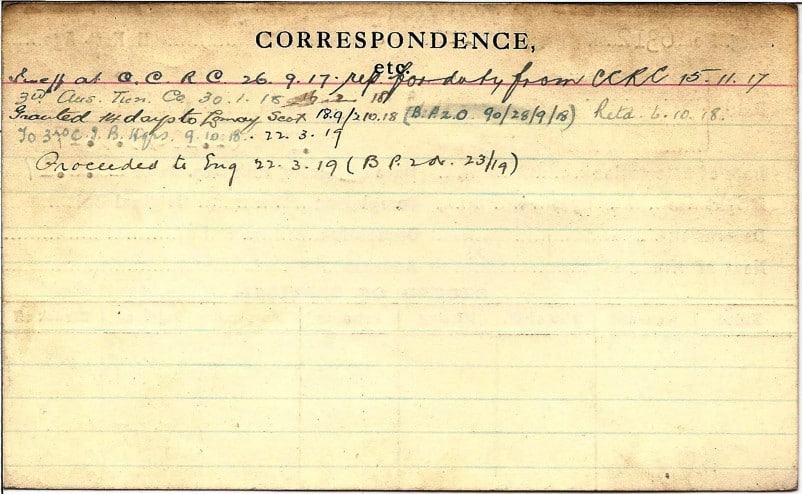 CORRESPONDENCE,
etc.
at C.C.R.C. 26.9.17. rep for duty from CCRC 15.11.17
3rd Aus. Tun. Co 30.1.18 18
Granted 14 days to Scot 18.9/2.10.18 (B.P.2.O. 90/28/9/18) Retd. 6.10.18.
To 3rd C. I. B. Hqrs. 9.10.18. 22.3.19
Proceeded to Eng 22.3.19 (B P. 2 O. 23/19)